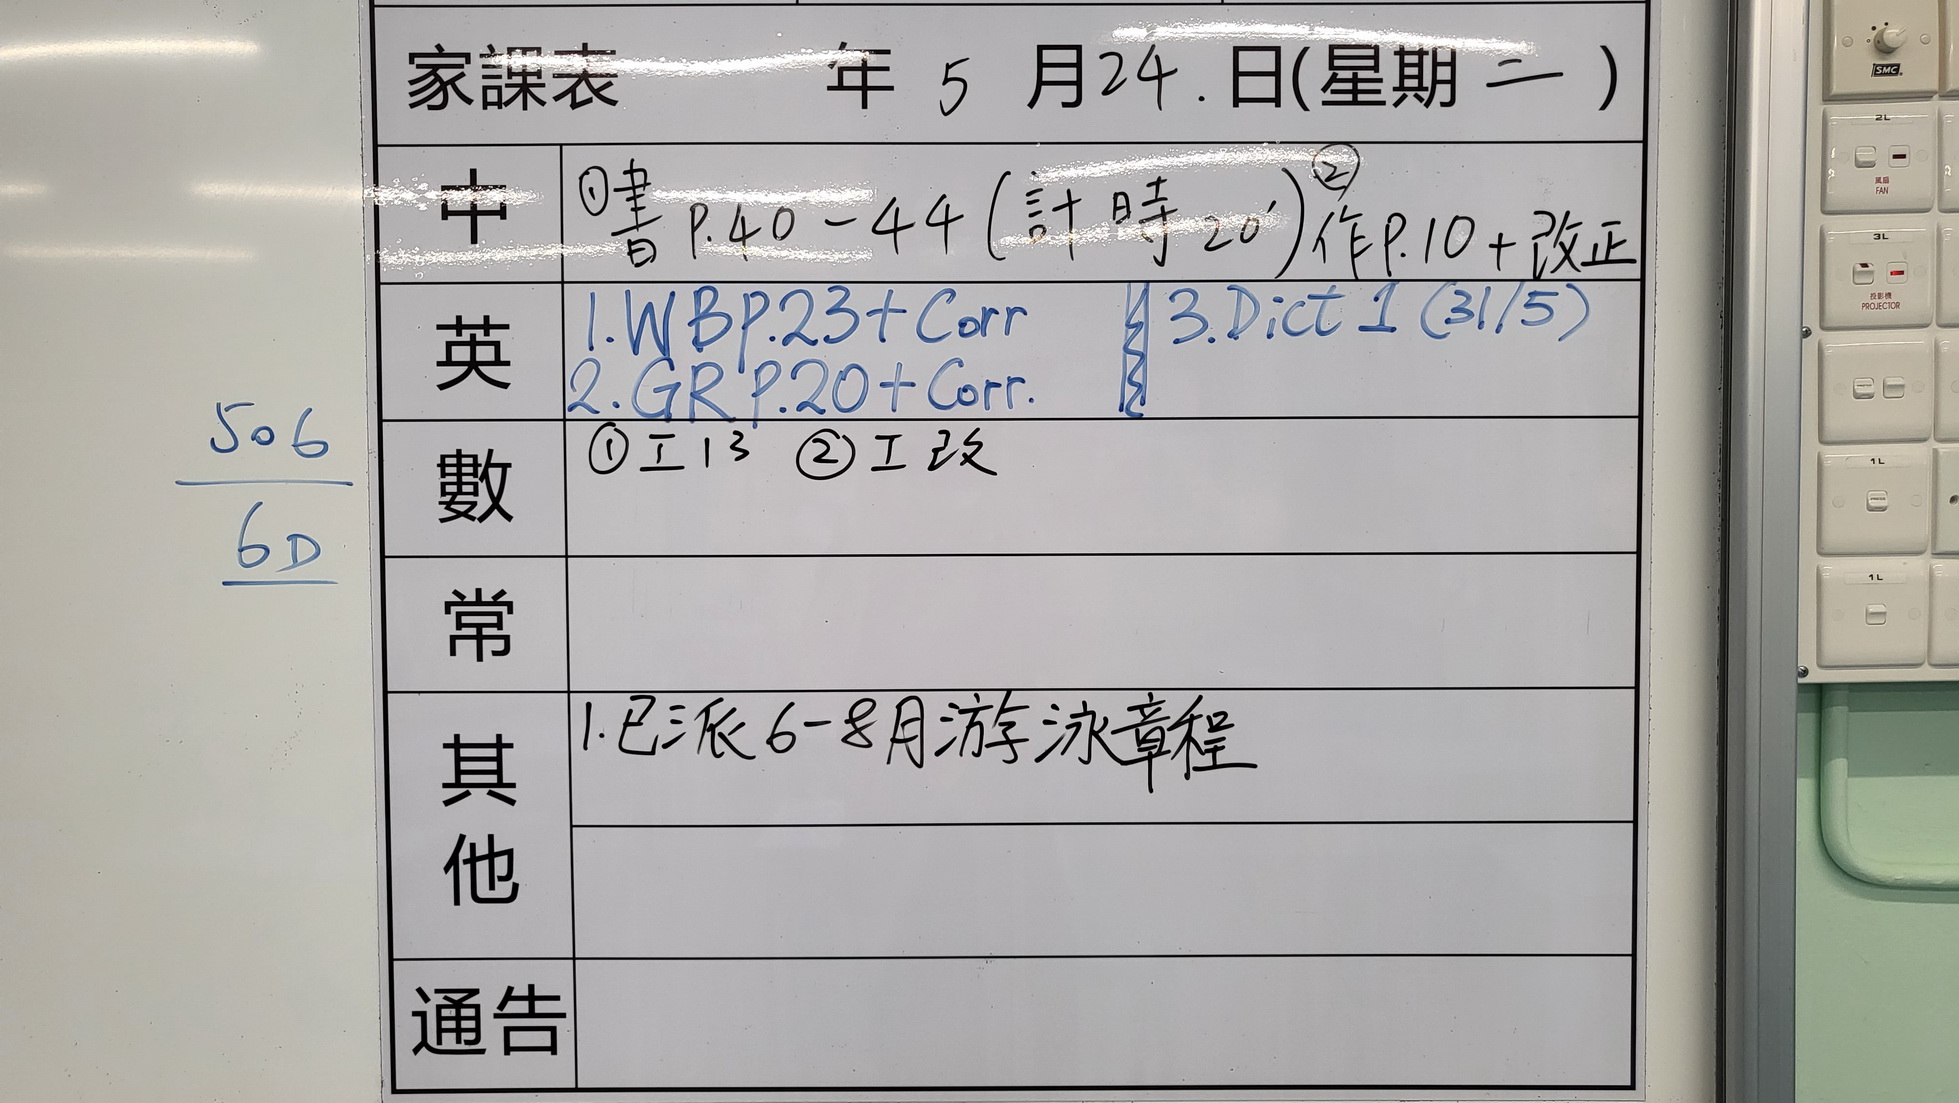 家課表 年 5 月 24. 日(星期 二 )
中 ①書 P.40-44 (計時 20') ②作P.10+改正
英 1.WB p.23+Corr 3.Dict 1 (31/5)
2.GR p.20+Corr.
數 ①工13 ②工改
常
其他 1.已派 6-8月游泳章程
通告
506
6D
SMC
2L
風扇
FAN
3L
投影機
PROJECTOR
1L
1L